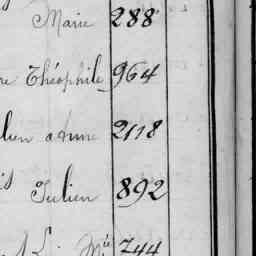 Marie 288
Théophile 964
lien anne 2118
Julien 892
Mie 744